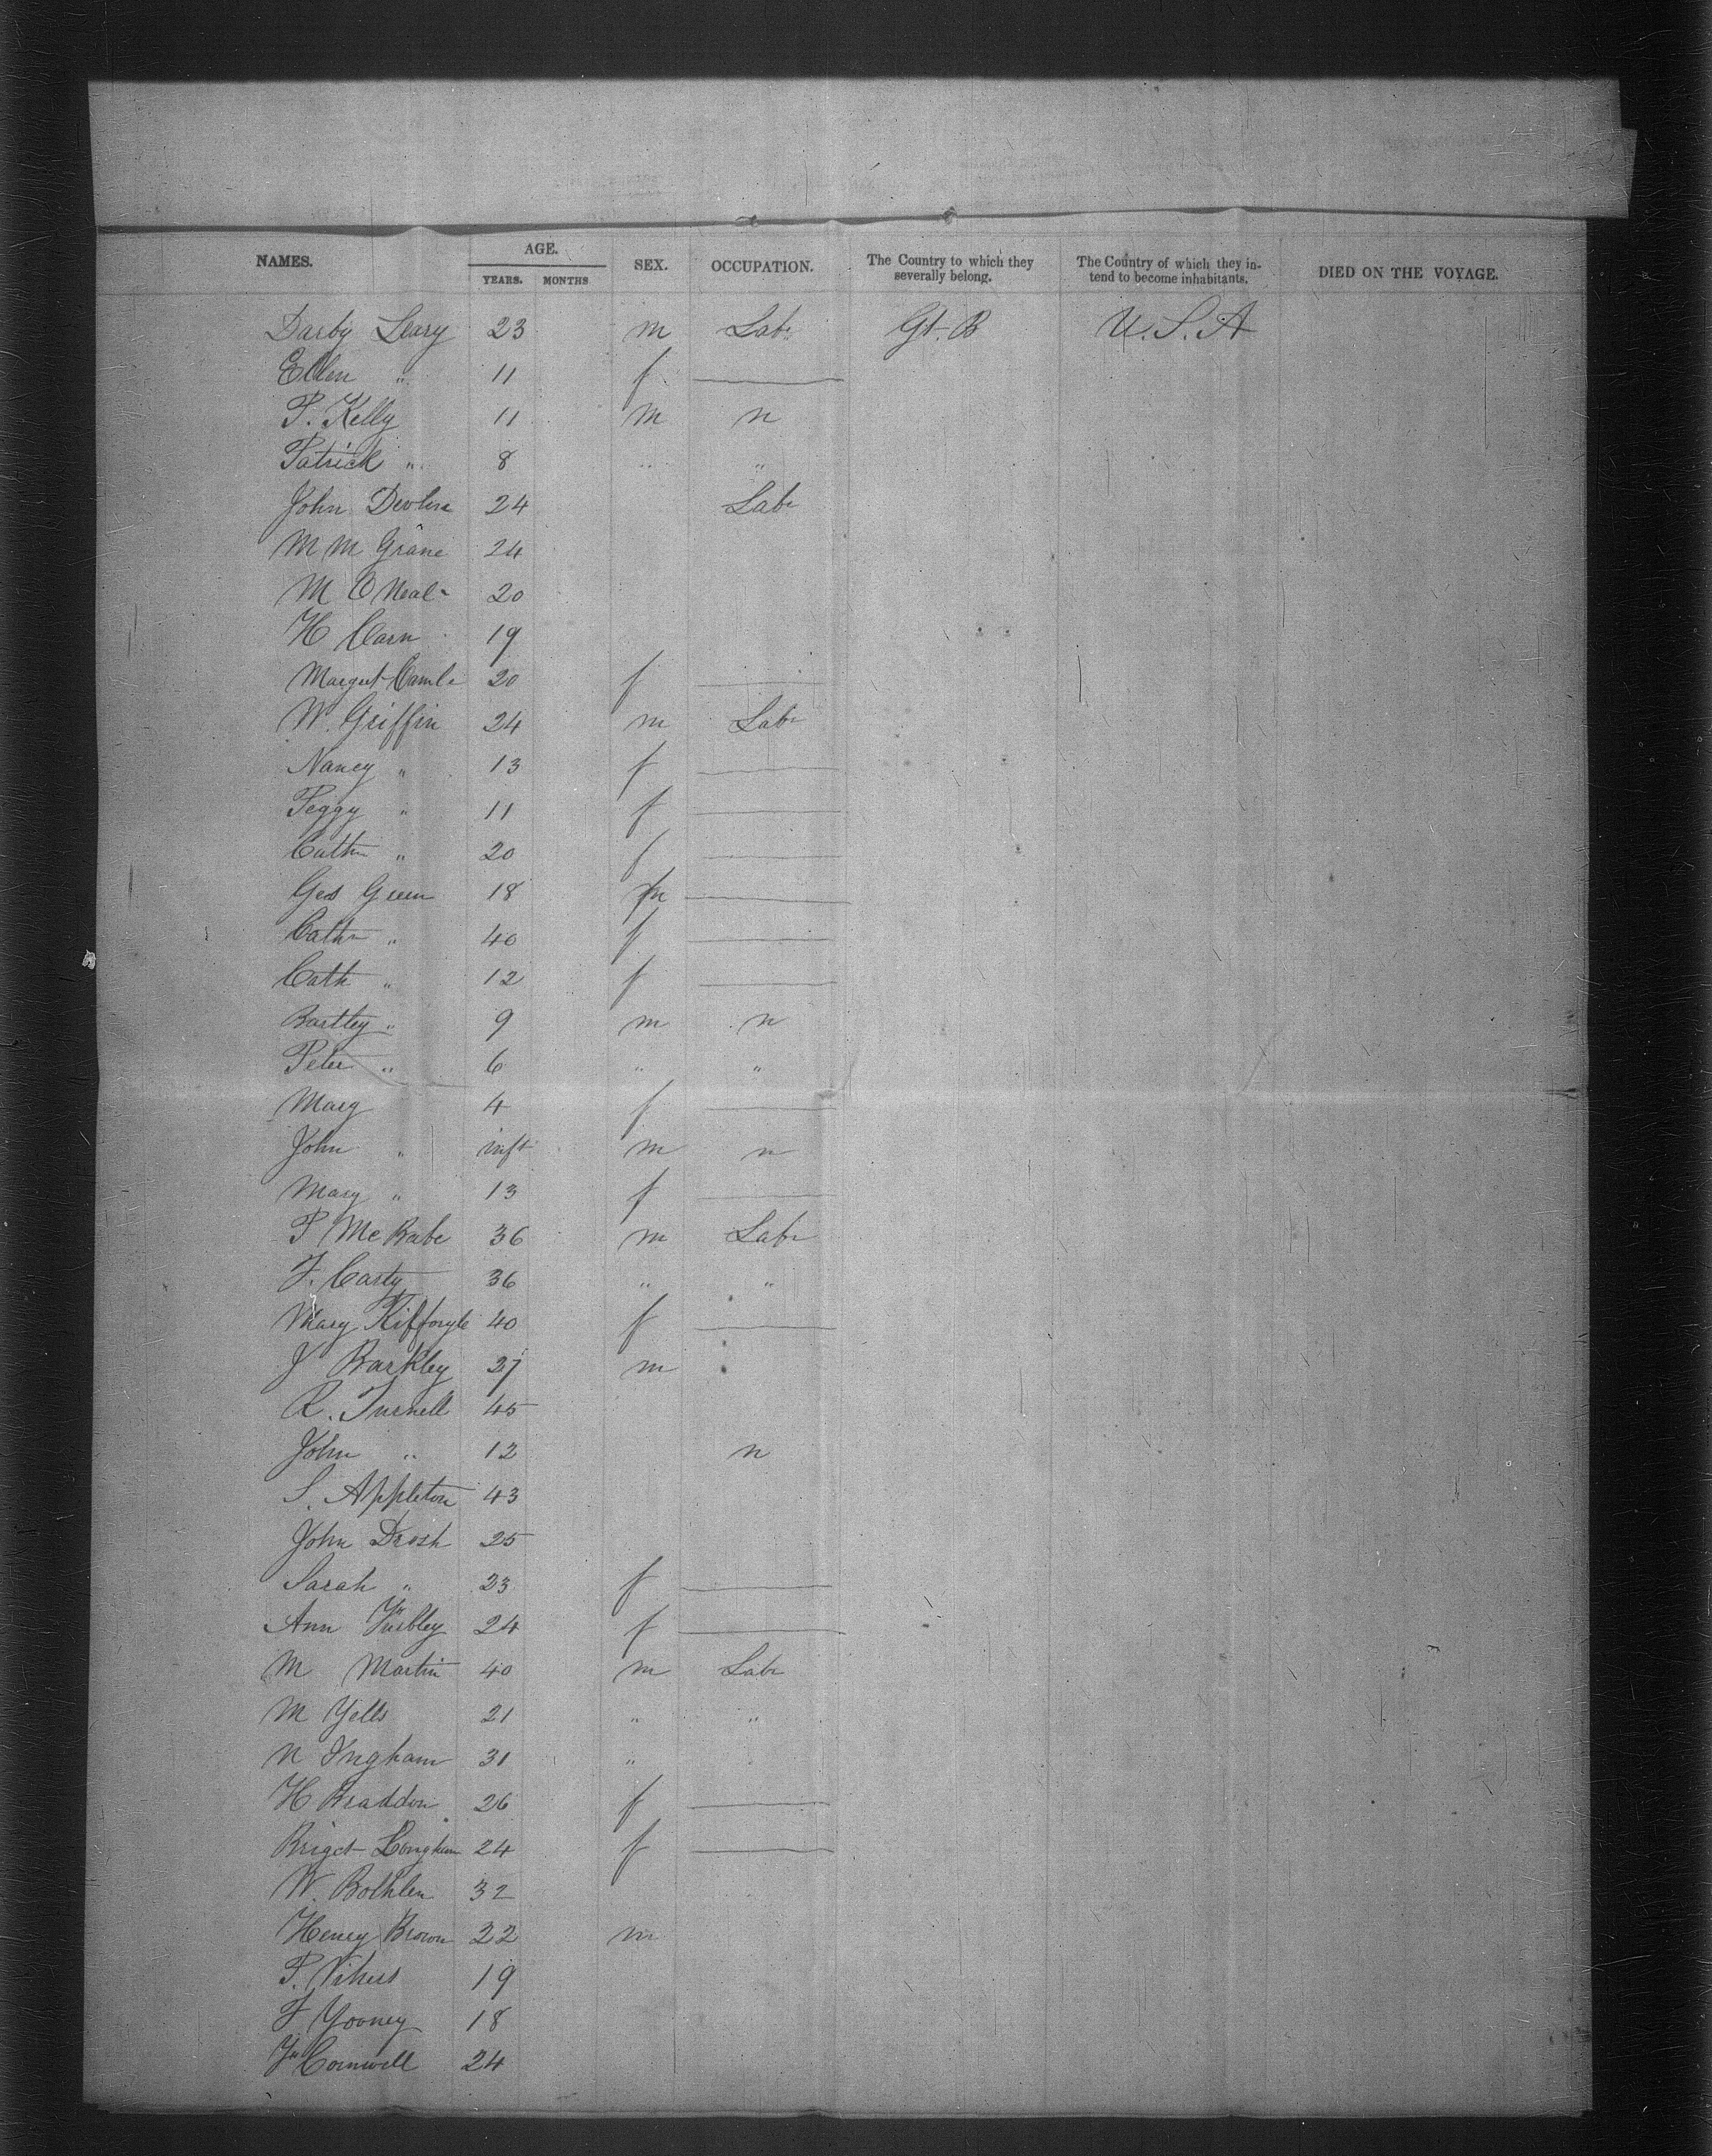 NAMES. AGE. YEARS. MONTHS SEX. OCCUPATION. The Country to which they severally belong. The Country of which they intend to become inhabitants. DIED ON THE VOYAGE.
Darby Leary 23 m Labr Gt. B U.S.A
Ellen " 11 f
P. Kelly 11 m n
Patrick " 8 " "
John Devlin 24 Labr
M M Grane 24
M O Neal 20
H Carn 19
Margret 20 f
W. Griffin 24 m Labr
Nancy " 13 f
Peggy " 11 f
Cathn " 20 f
Geo Green 18 m
Cathn " 40 f
Cath " 12 f
Bartley " 9 m n
Peter " 6 " "
Mary 4 f
John " inft m n
Mary " 13 f
P McCabe 36 m Labr
F. Carty 36 " "
Mary 40 f
J Barkley 27 m
R. Turnell 45
John " 12 n
S. Appleton 43
John Drosh 25
Sarah " 23 f
Ann 24 f
M Martin 40 m Labr
M Yells 21 " "
N Ingham 31 "
H Braddon 26 f
Briget 24 f
W. Bothlen 32
Henry Brown 22 m
P. 19
F Yooney 18
Jn Cornwell 24